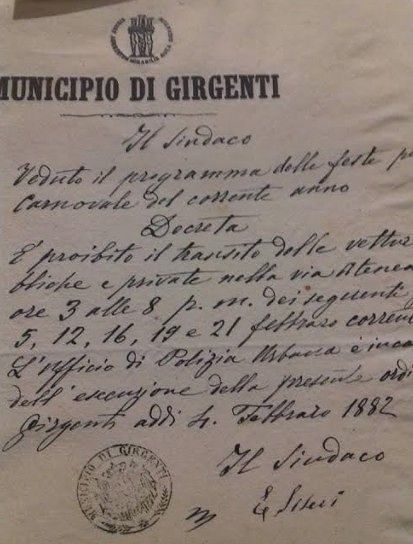 MUNICIPIO DI GIRGENTI
Il Sindaco
Veduto il programma delle feste p
Carnovale del corrente anno
Decreta
È proibito il transito delle vettur
bliche e private nella via Atenea
ore 3 alle 8 p. m. dei seguenti
5, 12, 16, 19 e 21 febbraro corren
L'ufficio di Polizia Urbana è inca
dell'esecuzione della presente ordi
Girgenti addì 4. Febbraro 1882
Il Sindaco
MUNICIPIO DI GIRGENTI